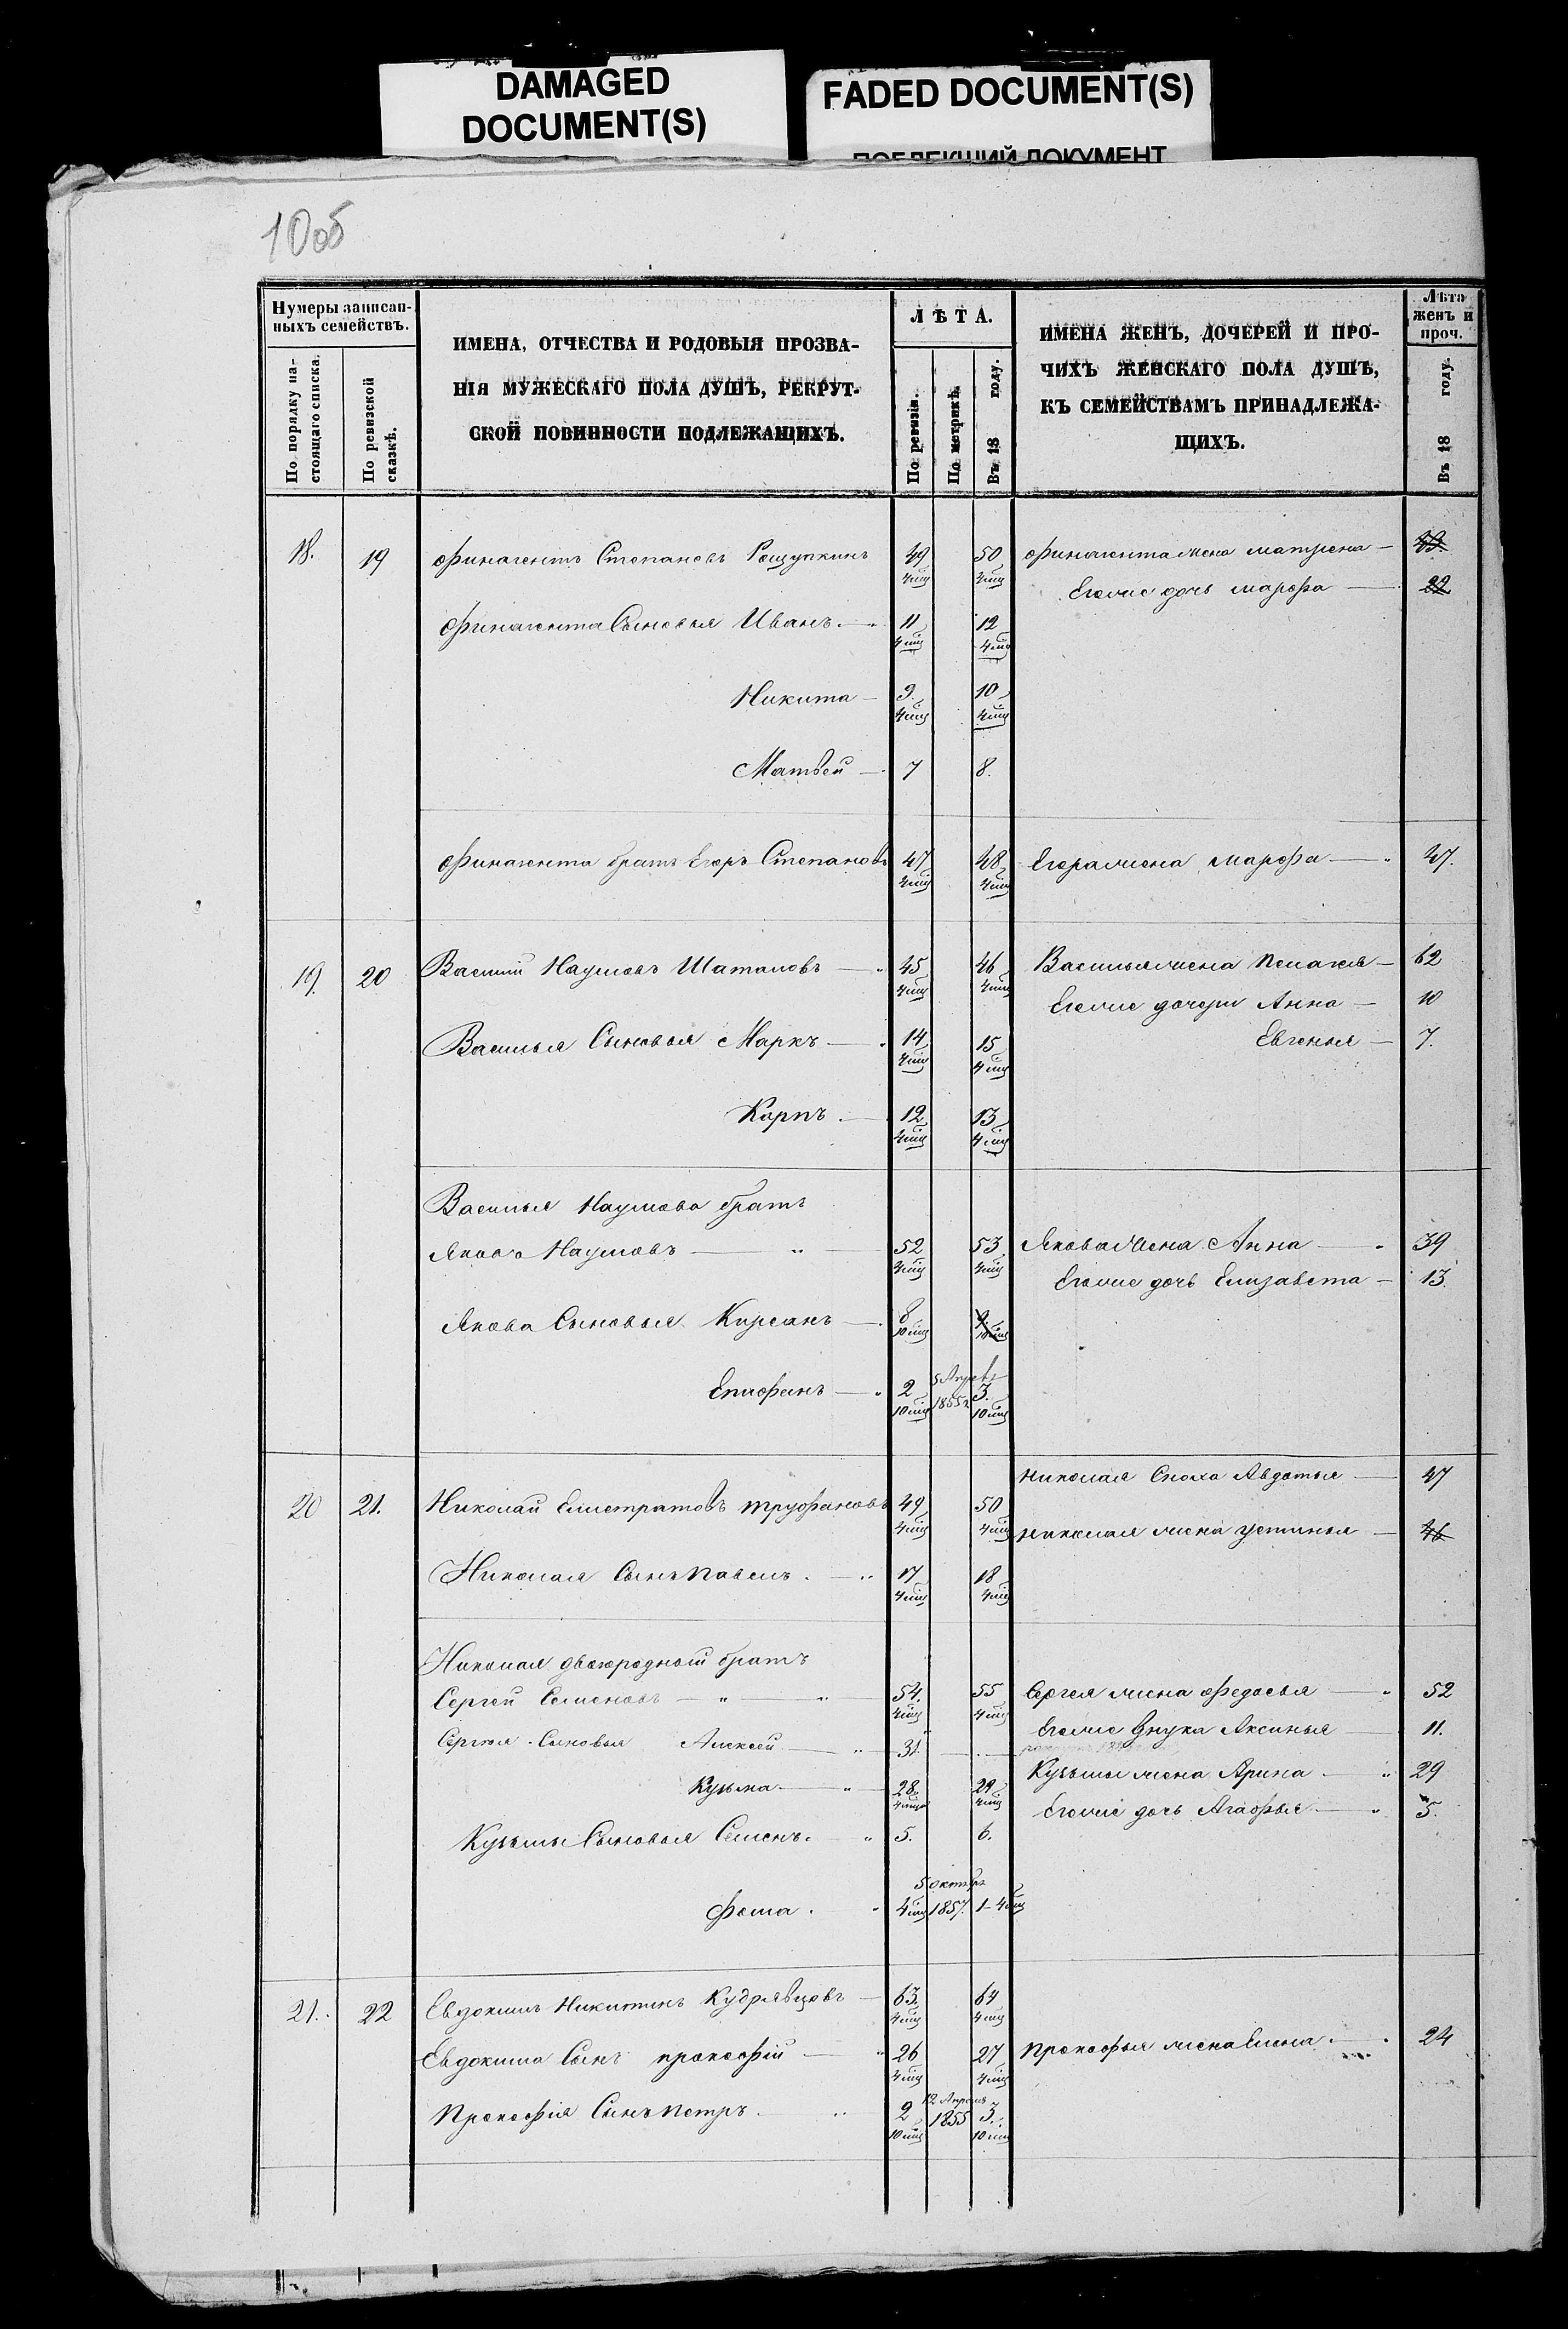 DAMAGED
DOCUMENT(S)
FADED DOCUMENT(S)
ПОБЛЕКШИЙ ДОКУМЕНТ
10об
Нумеры записан-
ныхъ семействъ.
По порядку на-
стоящаго списка.
По ревизской
сказкѣ.
ИМЕНА, ОТЧЕСТВА И РОДОВЫЯ ПРОЗВА-
НІЯ МУЖЕСКАГО ПОЛА ДУШЪ, РЕКРУТ-
СКОЙ ПОВИННОСТИ ПОДЛЕЖАЩИХЪ.
ЛѢТА.
По ревизіи.
По метрикѣ.
Въ 18 году.
ИМЕНА ЖЕНЪ, ДОЧЕРЕЙ И ПРО-
ЧИХЪ ЖЕНСКАГО ПОЛА ДУШЪ,
КЪ СЕМЕЙСТВАМЪ ПРИНАДЛЕЖА-
ЩИХЪ.
Лѣта
женъ и
проч.
Въ 18 году.
18. 19 Финагентъ Степановъ Рощупкинъ 49 4 мц 50 4 мц Финагента жена матрена
Егоже дочь марфа 22
Финагента Сыновья Иванъ 11 4 мц 12 4 мц
Никита 9. 4 мц 10 4 мц
Матвей 7 8.
Финагента братъ Егоръ Степановъ 47 4 мц 48 4 мц Егора жена марфа 47.
19. 20 Василий Наумовъ Шаталовъ 45 4 мц 46 4 мц Василья жена Пелагея 62
Егоже дочери Анна 10
Василья Сыновья Маркъ 14 4 мц 15 4 мц Евгенья 7.
Карпъ. 12 4 мц 13 4 мц
Василья Наумова братъ
Яковъ Наумовъ " 52 4 мц 53 4 мц Якова Жена Анна 39
Егоже дочь Елизавета 13.
Якова Сыновья Кирсанъ 8 10 мц 9. 10 мц
Епифанъ 2 10 мц 5 Апрел 1855 г 3. 10 мц
Николая Сноха Авдотья 47
20 21. Николай Елистратовъ труфановъ 49 4 мц 50 4 мц николая жена устинья 46
Николая Сынъ павелъ. 17 4 мц 18 4 мц
Николая двоюродный братъ
Сергей Семеновъ " " 54. 4 мц 55 4 мц Сергея жена Федосья 52
Егоже Внука Аксинья 11.
Сергея Сыновья Алексей 31.
Кузьма 28 4 мц 29 4 мц Кузьмы жена Арина 29
Егоже дочь Агафья 5.
Кузьмы Сыновья Семенъ. 5. 6.
Фома. 4 мц 5 октябр 1857. 1 - 4 мц
21. 22 Евдокимъ Никитинъ Кудрявцовъ 63. 4 мц 64 4 мц
Евдокима Сынъ прокофій 26 4 мц 27 4 мц Прокофья жена Елена 24
Прокофія Сынъ петръ 2 10 мц 12 Апрель 1855 3. 10 мц